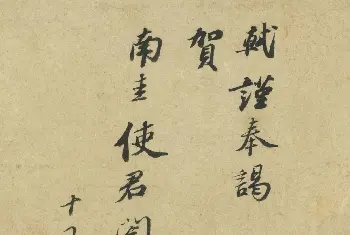 軾謹奉謁
賀
南圭使君閣
十